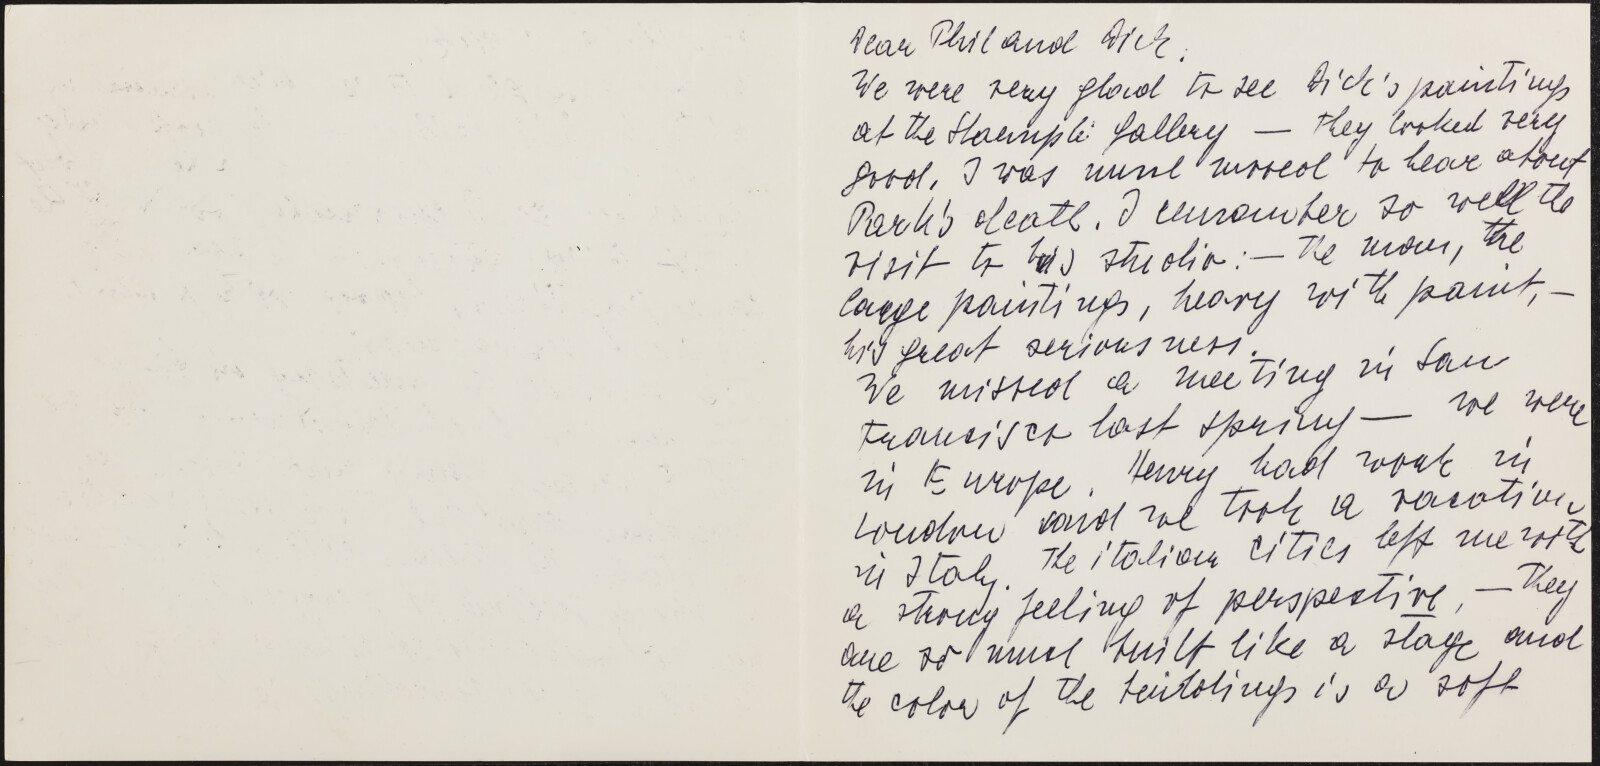 Dear Phil and Dick,
We were very glad to see Dick's paintings
at the Staempfli Gallery — they looked very
good. I was much moved to hear about
Park's death. I remember so well the
visit to his studio: — the man, the
large paintings, heavy with paint, —
his great seriousness.
We missed a meeting in San
Francisco last spring — we were
in Europe. Henry had work in
London and we took a vacation
in Italy. The italian cities left me with
a strong feeling of perspective, — they
are so much built like a stage and
the color of the buildings is a soft